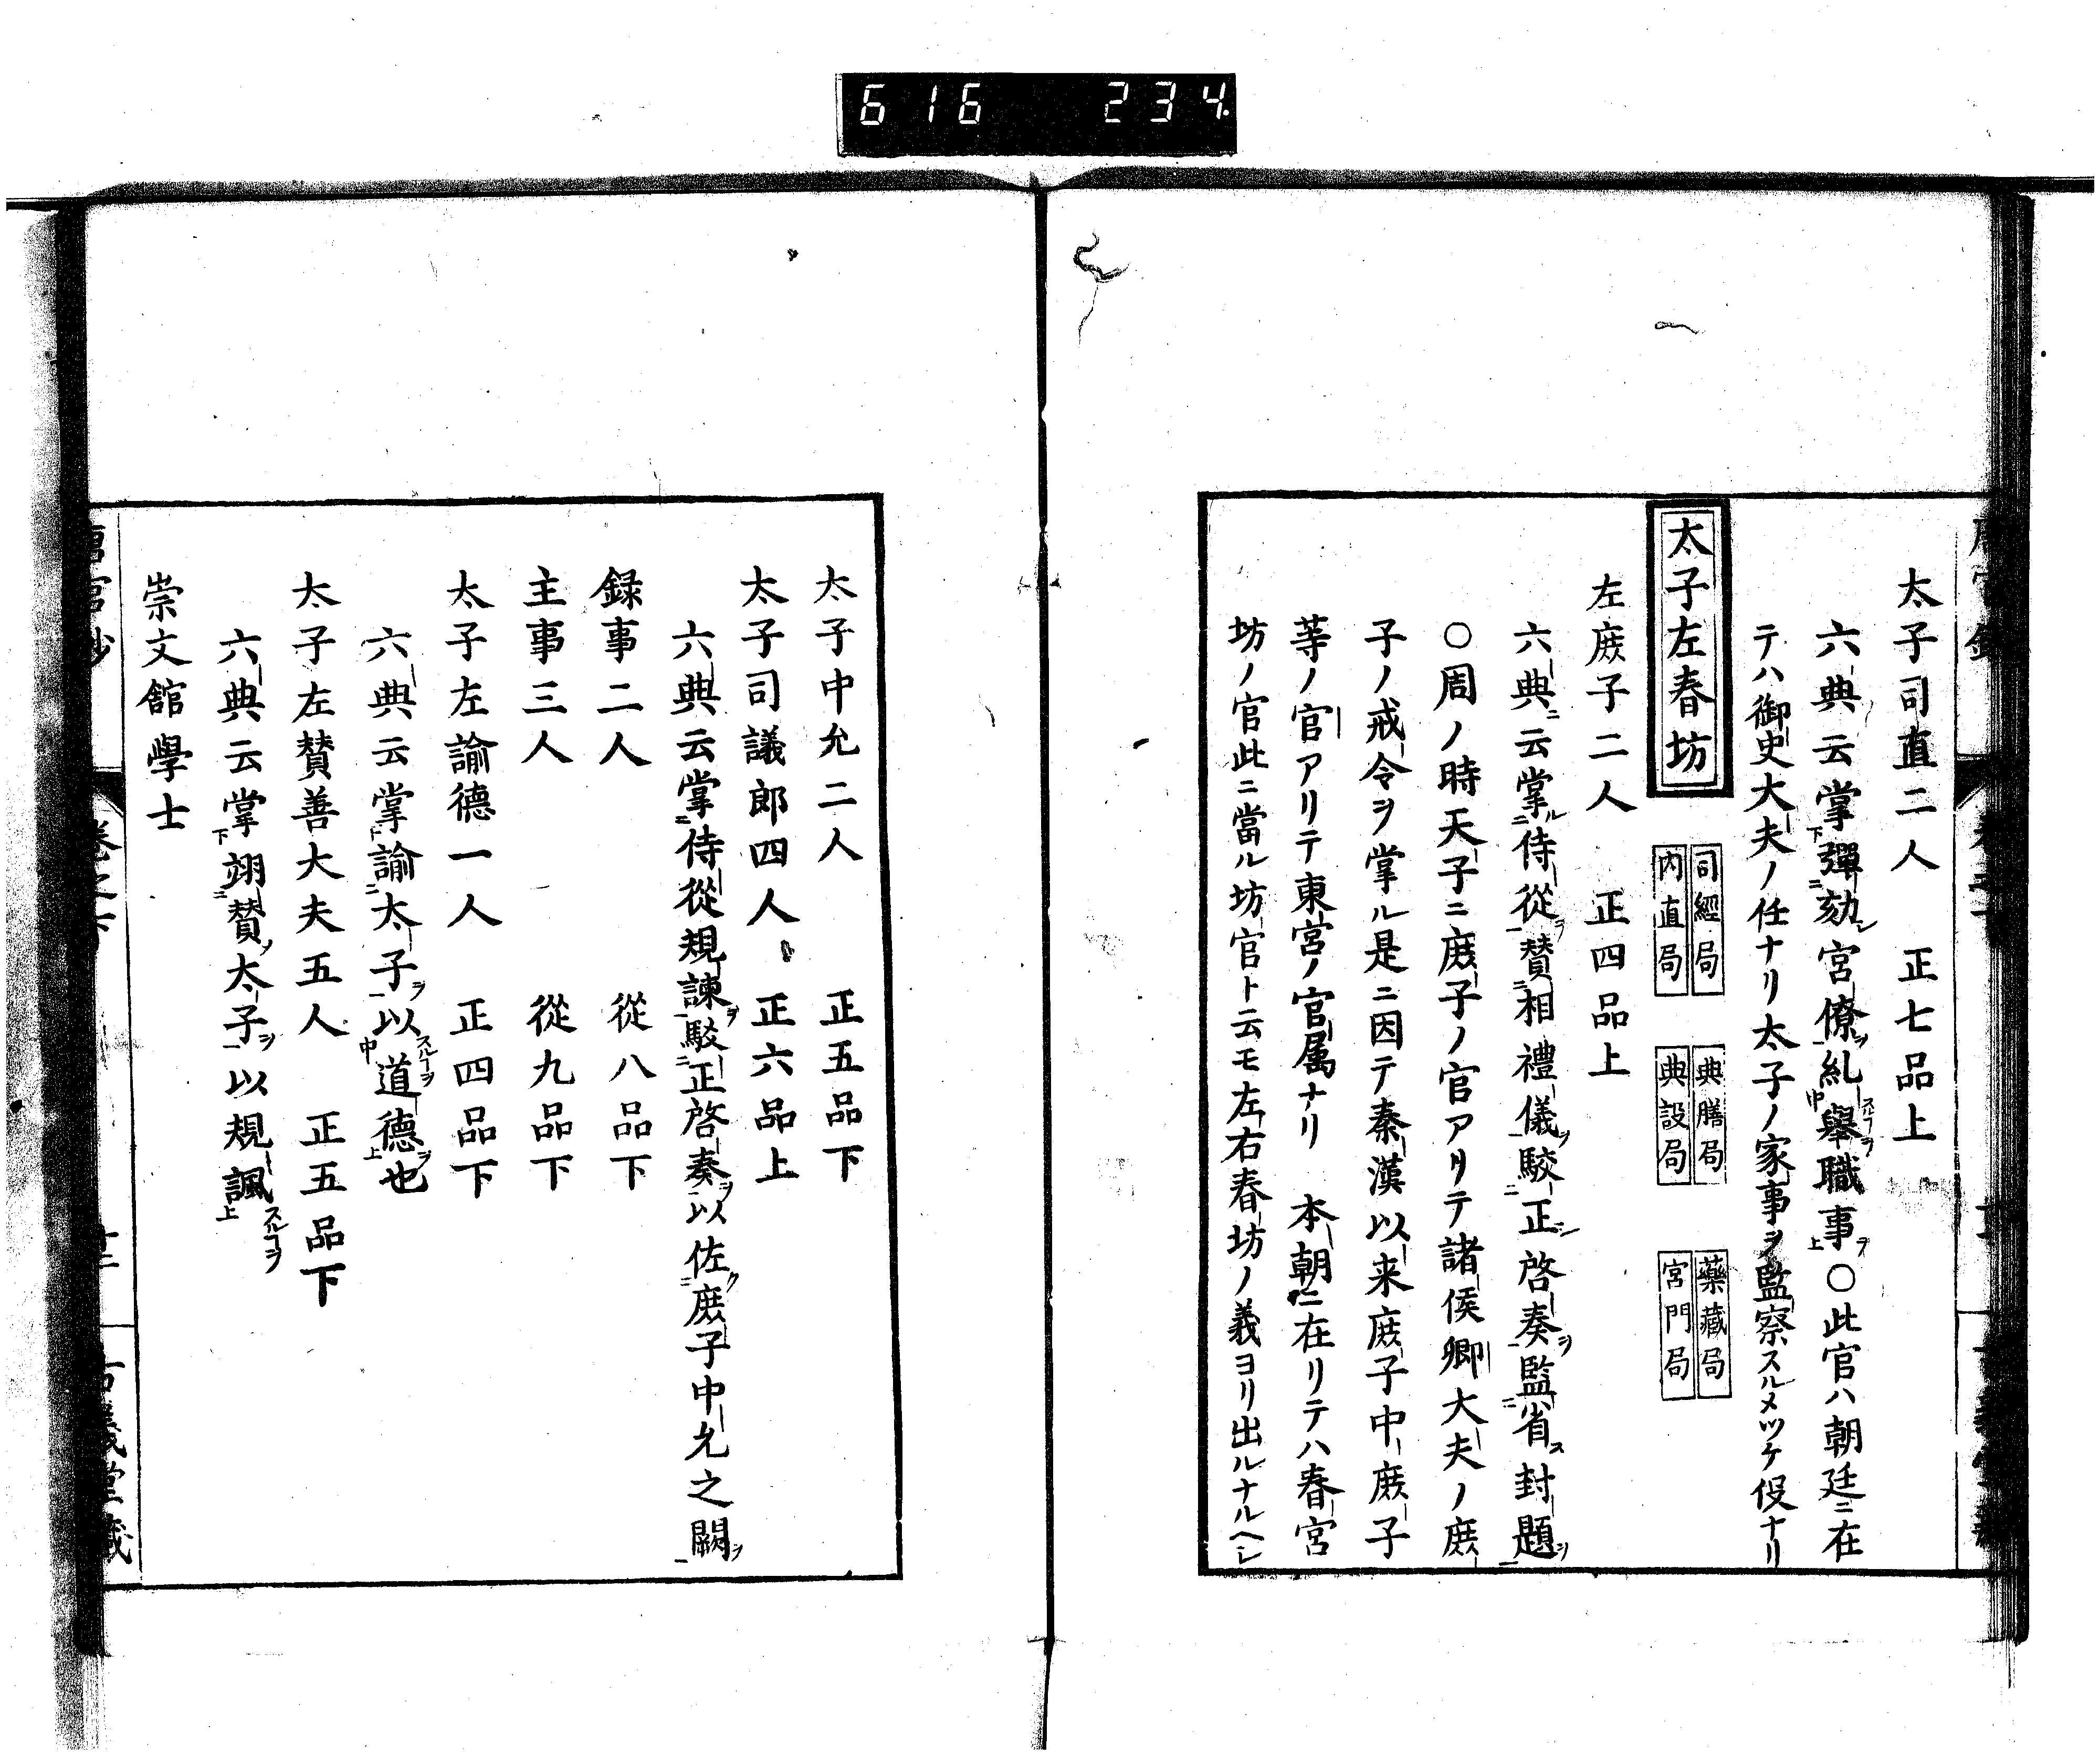 616 234
太子司直二人 正七品上
六典云掌彈劾宮僚糺舉職事〇此官ハ朝廷ニ在
テハ御史大夫ノ任ナリ太子ノ家事ヲ監察スルメツケ役ナリ
太子左春坊
司經局 典膳局 藥藏局
内直局 典設局 宮門局
左庻子二人 正四品上
六典ニ云掌ル侍從ヲ賛相禮儀ヲ駮正シ啓奏ヲ監省ス封題ヲ
〇周ノ時天子ニ庻子ノ官アリテ諸侯卿大夫ノ庻
子ノ戒令ヲ掌ル是ニ因テ秦漢以来庻子中庻子
等ノ官アリテ東宮ノ官属ナリ 本朝ニ在リテハ春宮
坊ノ官此ニ當ル坊官ト云モ左右春坊ノ義ヨリ出ルナルヘシ
太子中允二人 正五品下
太子司議郎四人 正六品上
六典云掌侍從規諫ヲ駁正啓奏ヲ以佐庻子中允之闕ヲ
録事二人 從八品下
主事三人 從九品下
太子左諭德一人 正四品下
六典云掌諭太子ヲ以道德ヲ也
太子左賛善大夫五人 正五品下
六典云掌翊賛太子ヲ以規諷スルヿヲ
崇文館學士
卷之下
古義堂藏